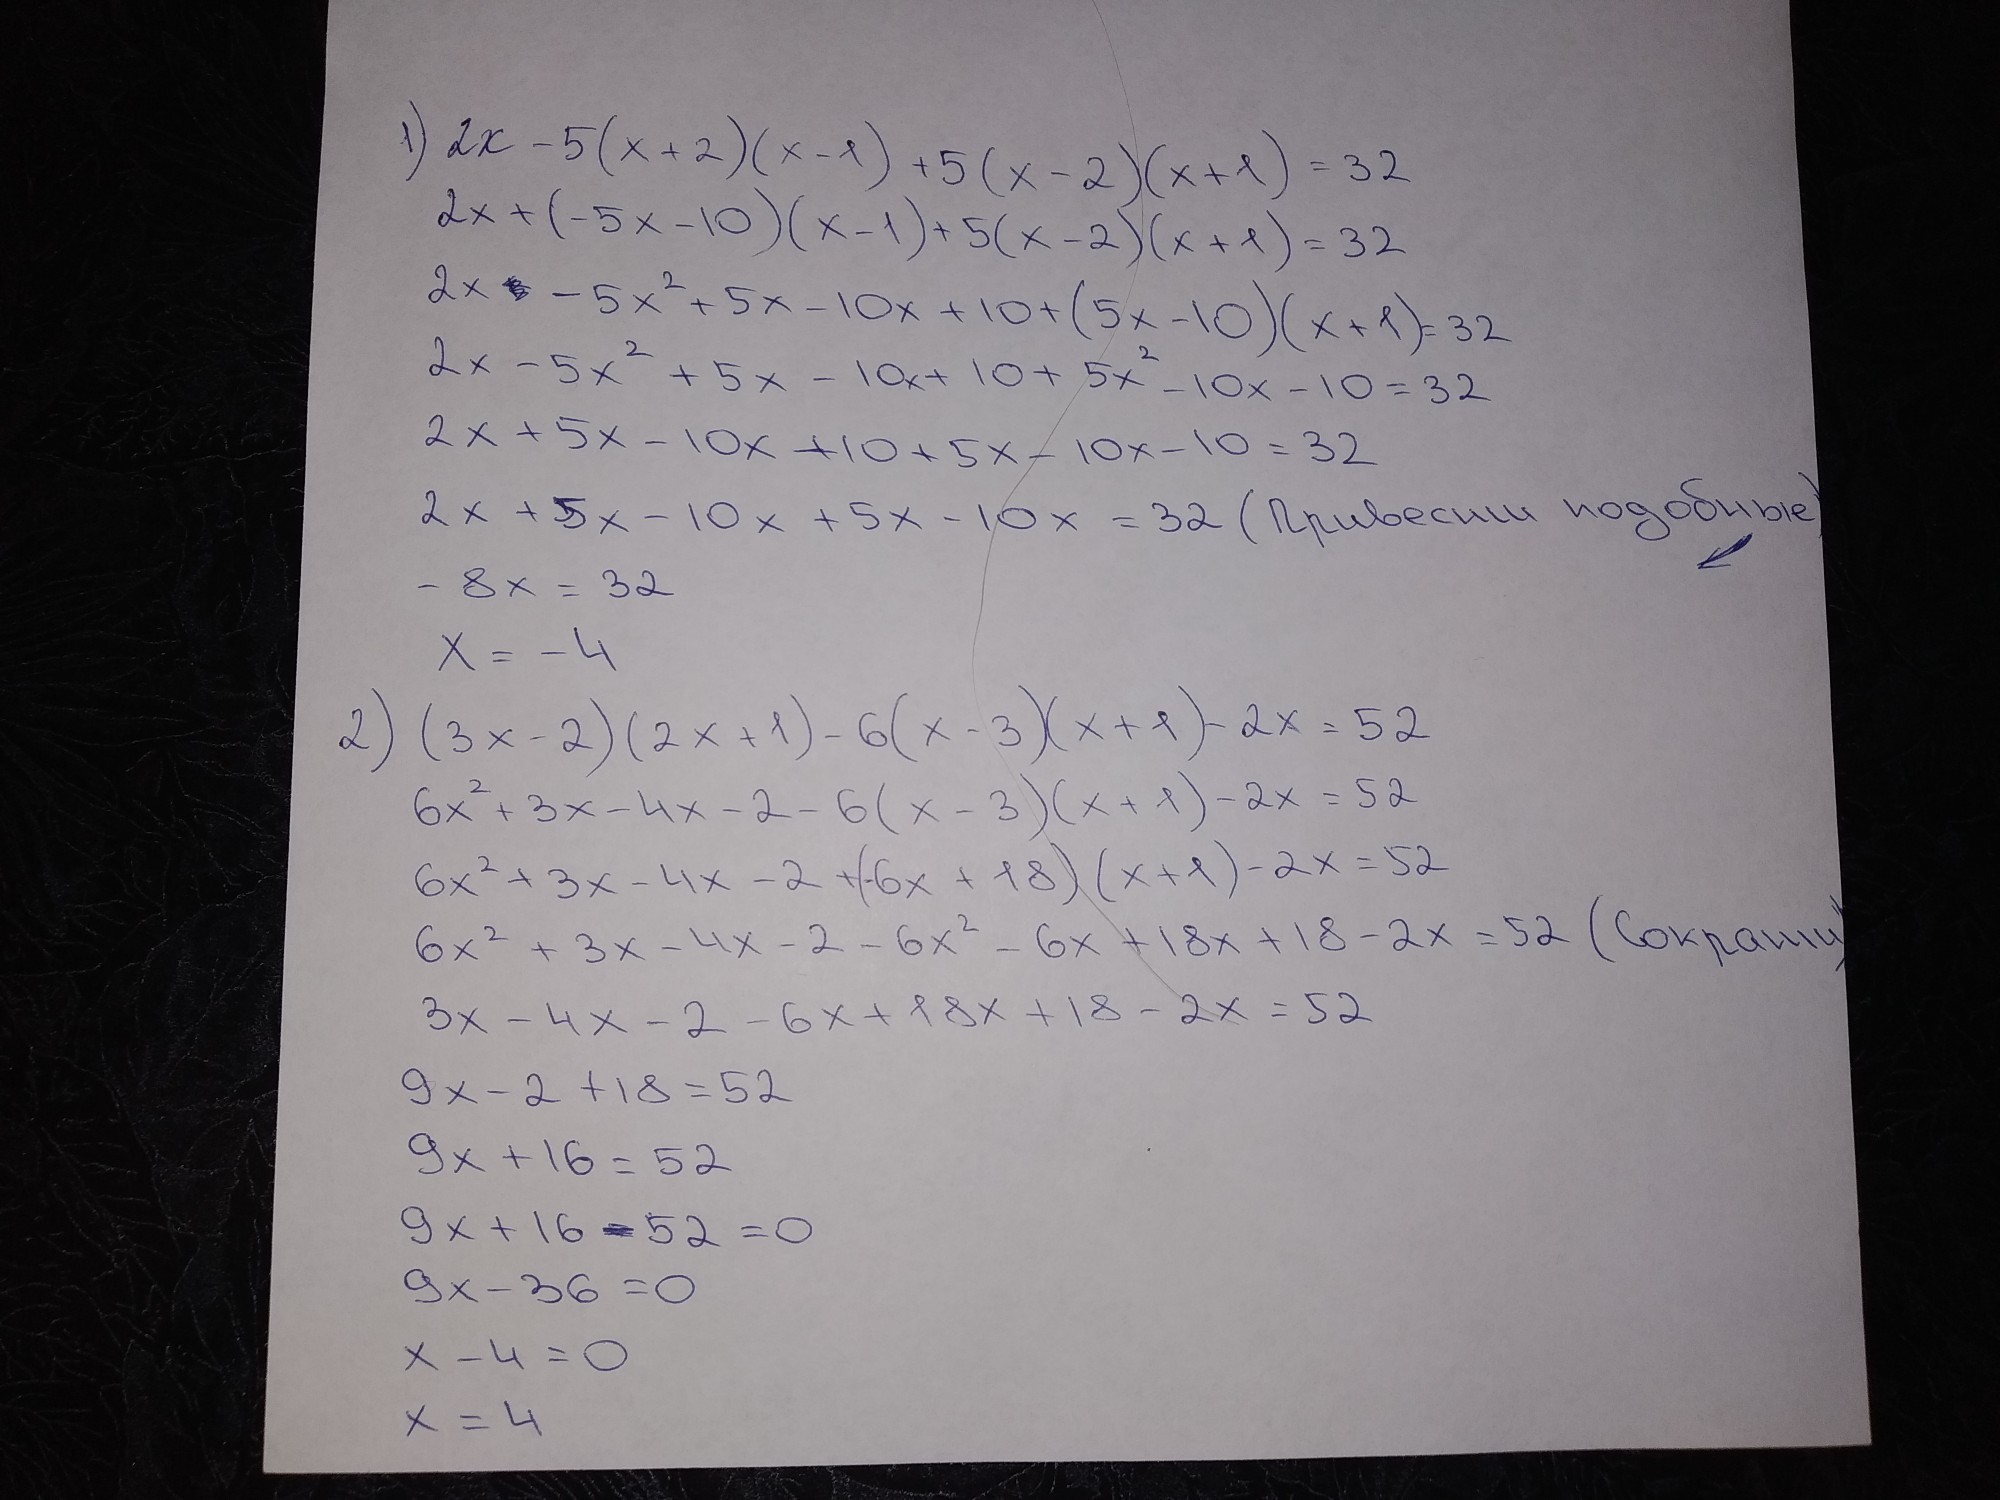 1) 2x - 5(x+2)(x-1) + 5(x-2)(x+1) = 32
2x + (-5x-10)(x-1) + 5(x-2)(x+1) = 32
2x - 5x² + 5x - 10x + 10 + (5x-10)(x+1) = 32
2x - 5x² + 5x - 10x + 10 + 5x² - 10x - 10 = 32
2x + 5x - 10x + 10 + 5x - 10x - 10 = 32
2x + 5x - 10x + 5x - 10x = 32 (Привесии подобные)
- 8x = 32
x = -4
2) (3x-2)(2x+1) - 6(x-3)(x+1) - 2x = 52
6x² + 3x - 4x - 2 - 6(x-3)(x+1) - 2x = 52
6x² + 3x - 4x - 2 + (-6x + 18)(x+1) - 2x = 52
6x² + 3x - 4x - 2 - 6x² - 6x + 18x + 18 - 2x = 52 (Сократи)
3x - 4x - 2 - 6x + 18x + 18 - 2x = 52
9x - 2 + 18 = 52
9x + 16 = 52
9x + 16 - 52 = 0
9x - 36 = 0
x - 4 = 0
x = 4